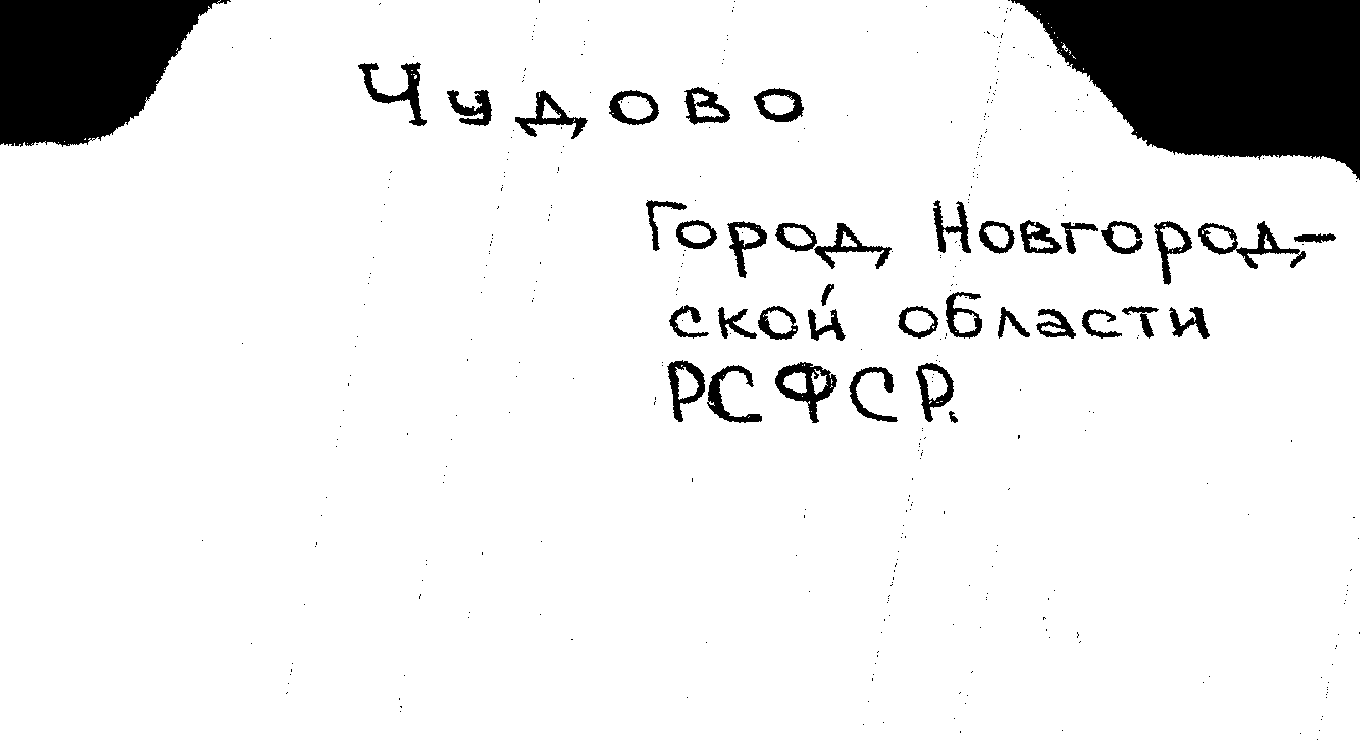 Чудово
Город Новгород-
ской области
РСФСР.